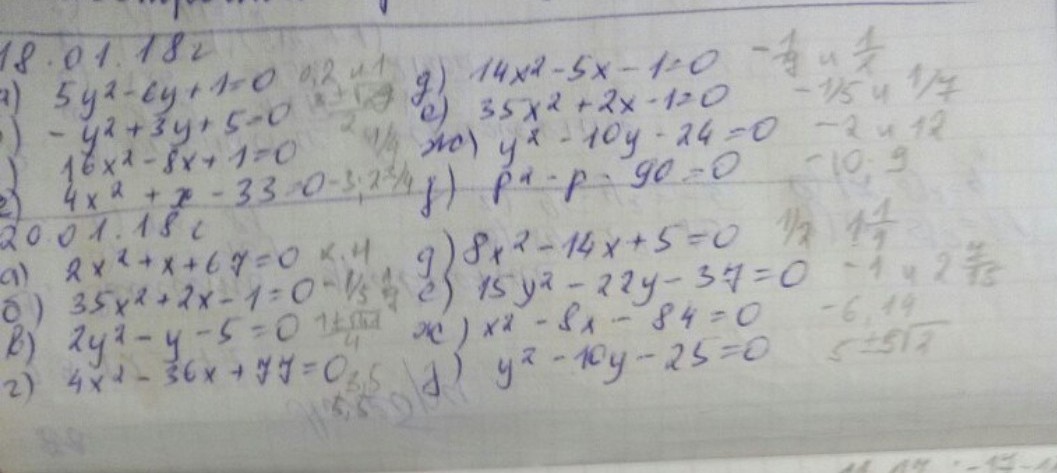 18.01.18г
а) 5y²-6y+1=0 0,2 и 1
б) -y²+3y+5=0
в) 16x²-8x+1=0 1/4
г) 4x² + x - 33=0 -3; 2 3/4
д) 14x²-5x-1=0
е) 35x²+2x-1=0 -1/5 и 1/7
ж) y² - 10y - 24=0 -2 и 12
з) p² - p - 90=0 -10; 9
20.01.18г
а) 2x²+x+67=0
б) 35x²+2x-1=0 -1/5 1/7
в) 2y²-y-5=0
г) 4x²-36x+77=0 3,5 5,5
д) 8x²-14x+5=0 1/2
е) 15y²-22y-37=0 -1 и 2 7/15
ж) x²-8x-84=0 -6, 14
y²-10y-25=0 5±5√2